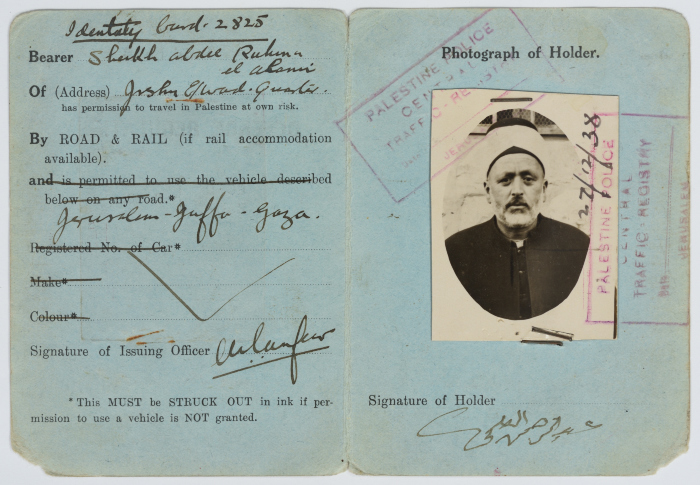 Identity Card. 2825
Bearer Sheikh Abdel Rahman
el Alami
Of (Address) Jrslm El Wad. Quarter.
has permission to travel in Palestine at own risk.
By ROAD & RAIL (if rail accommodation
available).
and is permitted to use the vehicle described
below on any road.*
Jerusalem - Jaffa - Gaza.
Registered No. of Car*
Make*
Colour*
Signature of Issuing Officer
* This MUST be STRUCK OUT in ink if per-
mission to use a vehicle is NOT granted.
Photograph of Holder.
PALESTINE POLICE
CENTRAL
TRAFFIC - REGISTRY
27/12/38
PALESTINE POLICE
CENTRAL
TRAFFIC - REGISTRY
Date
JERUSALEM
Signature of Holder